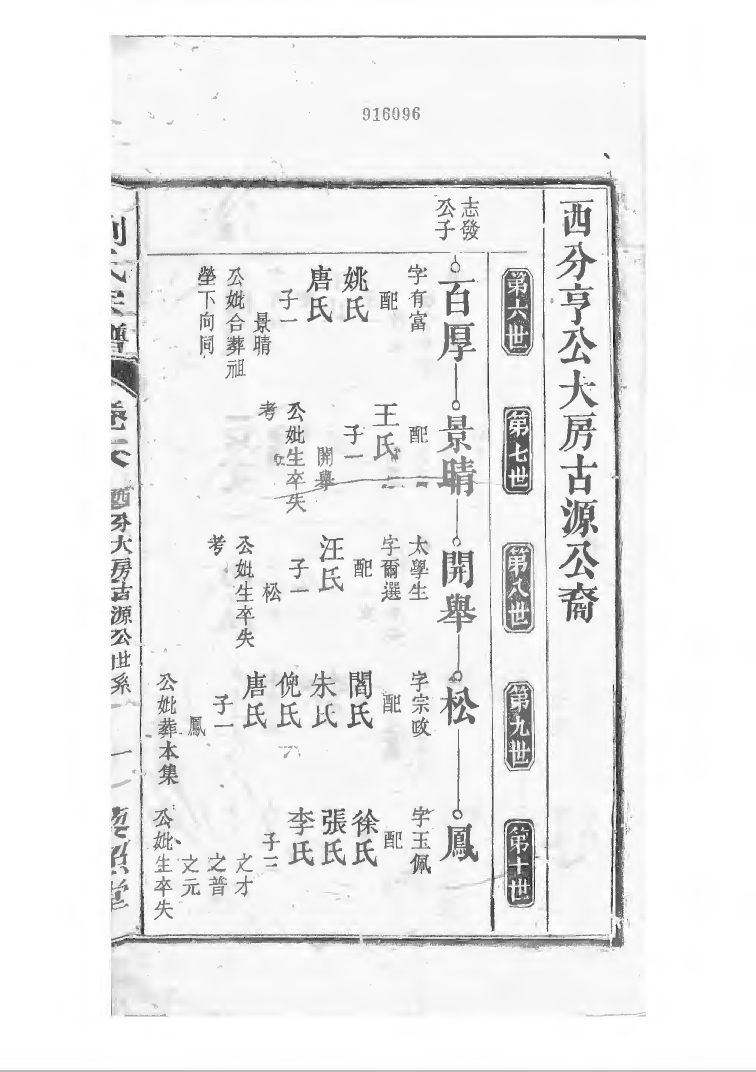 916096
西分亨公大房古源公裔
第六世
第七世
第八世
第九世
第十世
志發
公子
百厚
字有富
配
姚氏
唐氏
子一
景晴
公妣合葬祖
塋下向同
景晴
配
王氏
子一
開舉
公妣生卒失
考
開舉
太學生
字爾選
配
汪氏
子一
松
公妣生卒失
考
松
字宗政
配
閻氏
朱氏
倪氏
唐氏
子一
鳳
公妣葬本集
鳳
字玉佩
配
徐氏
張氏
李氏
子三
文才
之普
文元
公妣生卒失
氏宗譜
卷六
西分大房古源公世系
一
堂